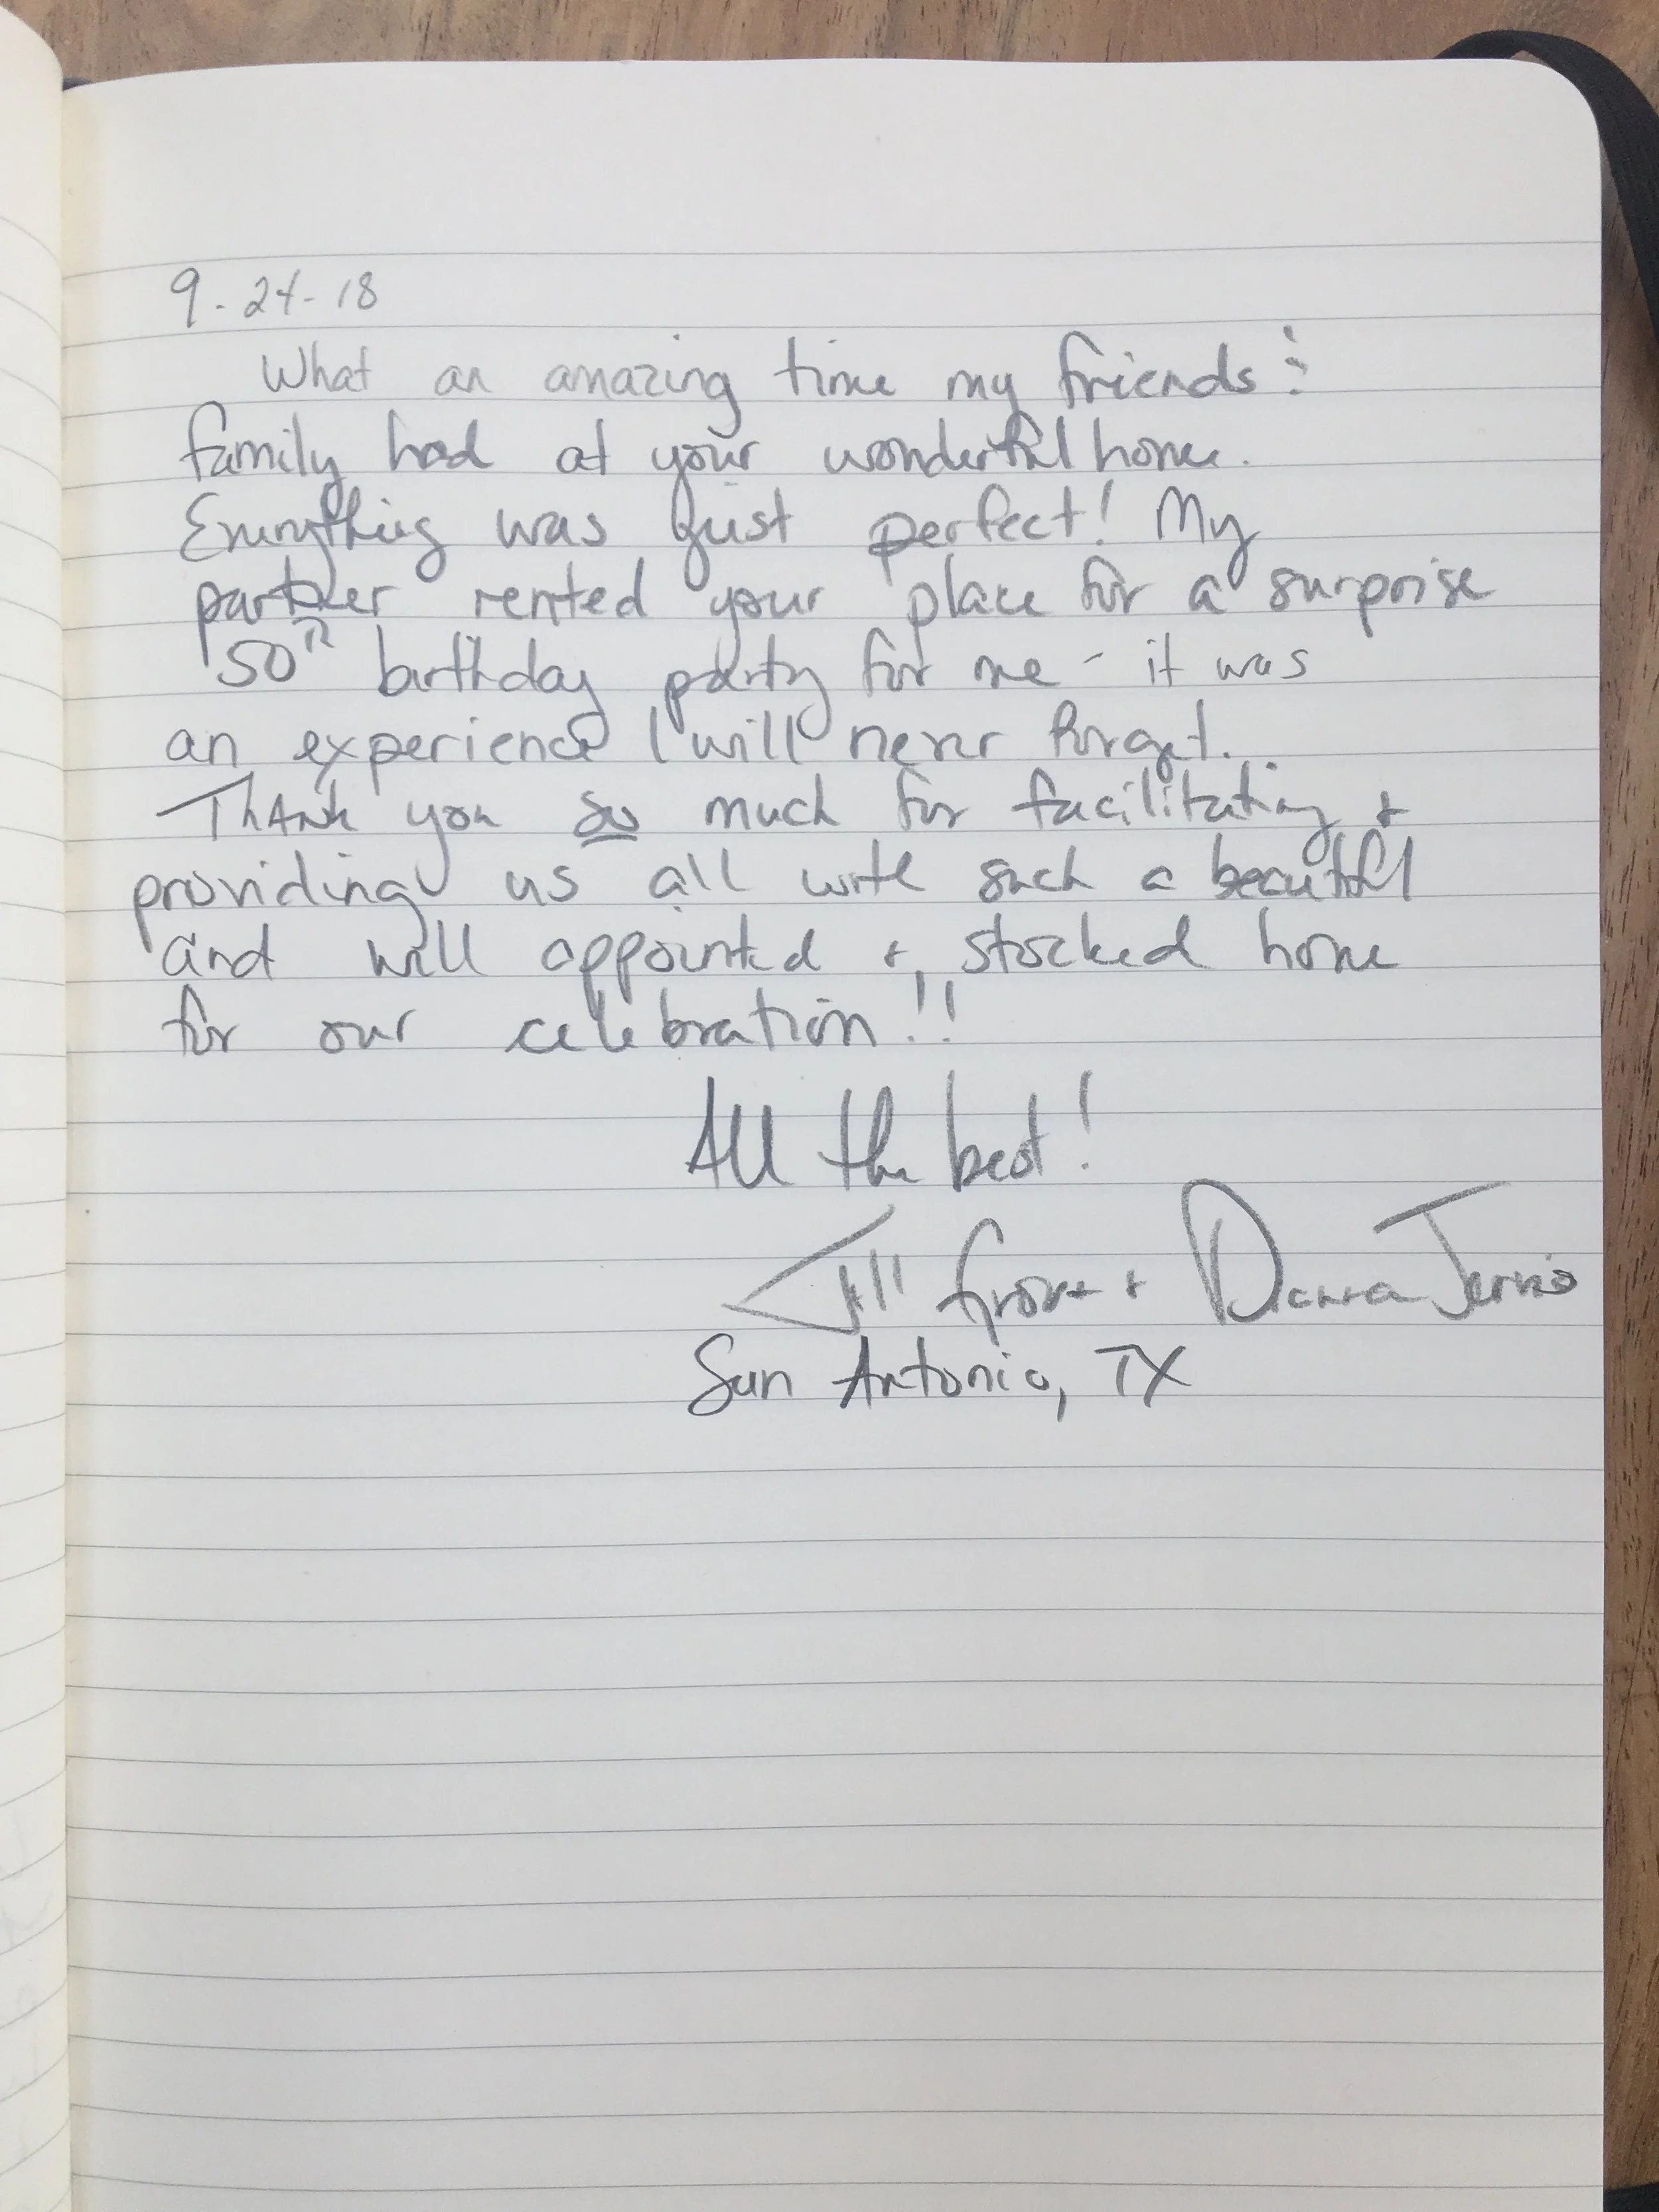 9-24-18
What an amazing time my friends &
family had at your wonderful home.
Everything was just perfect! My
partner rented your place for a surprise
50th birthday party for me - it was
an experience I will never forget.
Thank you so much for facilitating +
providing us all with such a beautiful
and well appointed + stocked home
for our celebration!!
All the best!
Jill + Danna
San Antonio, TX